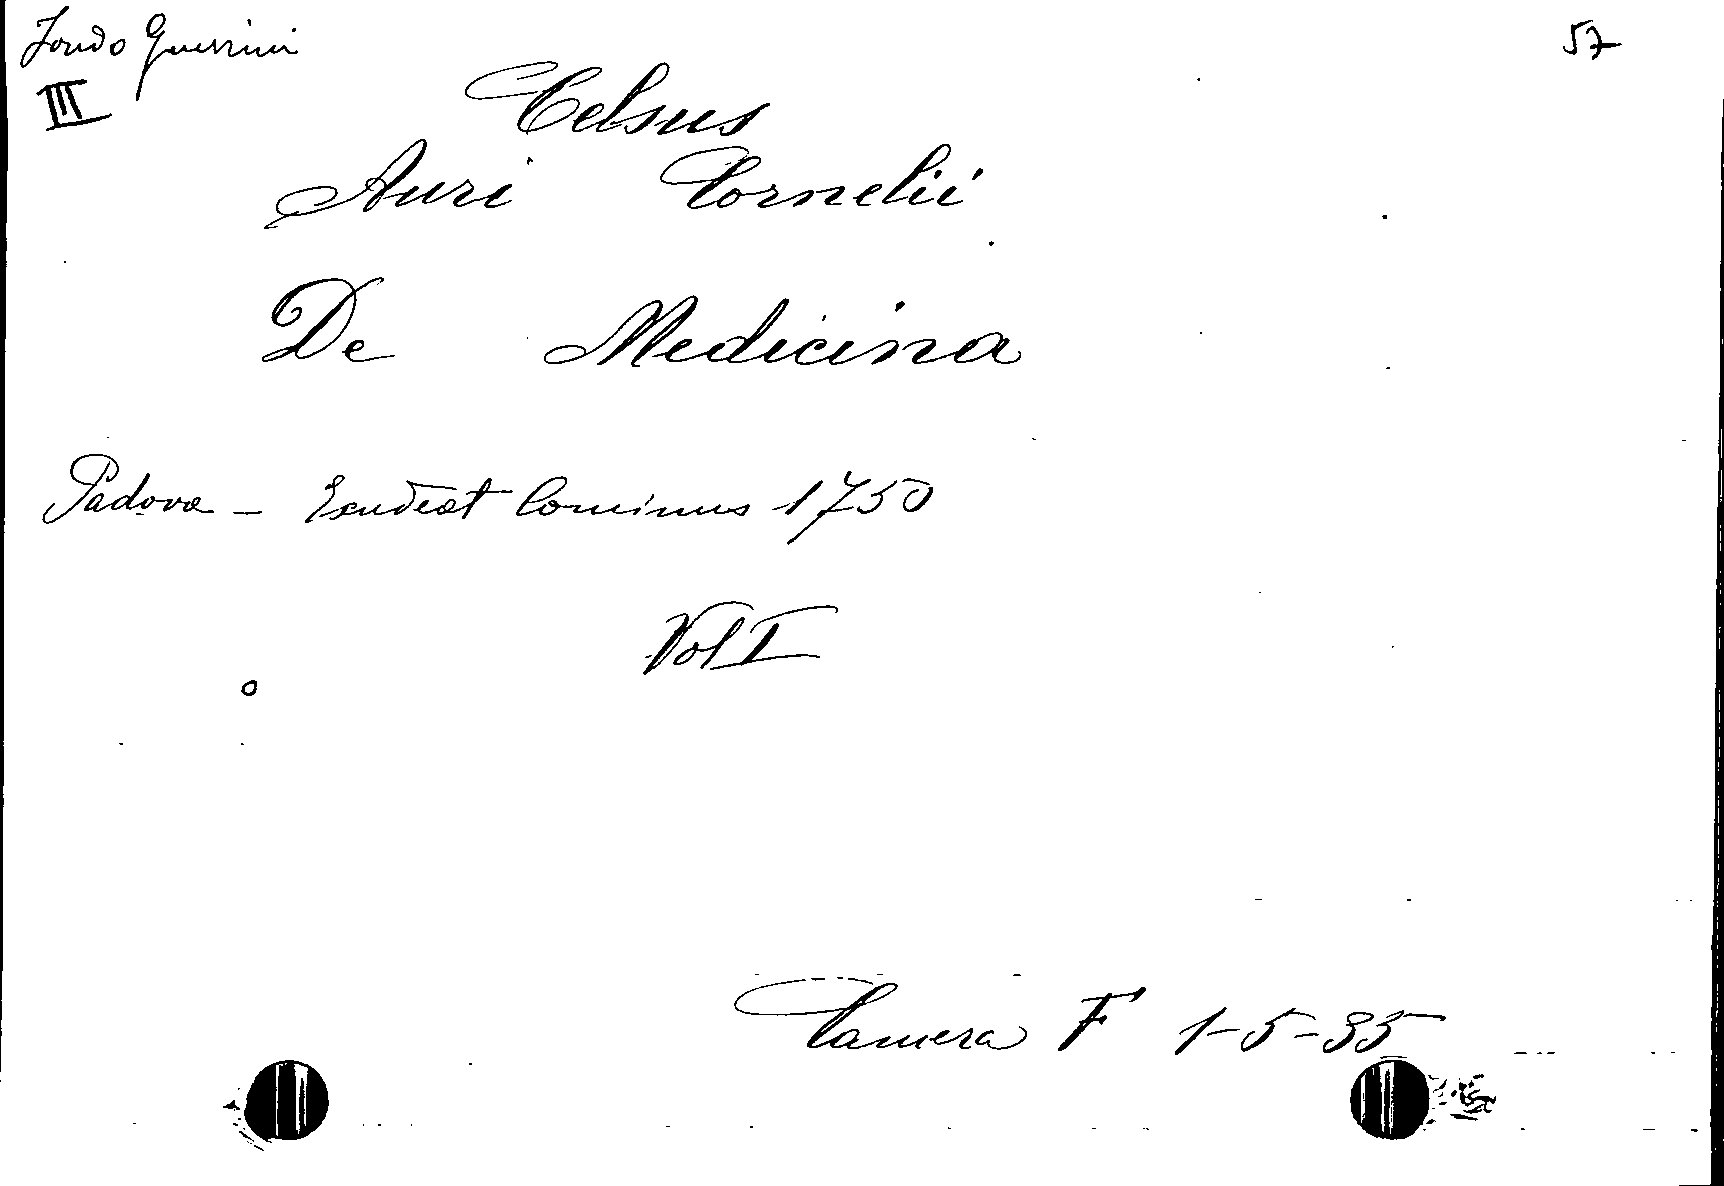 Fondo Guerrini
57
III
Celsus
Auri Cornelii
De Medicina
Padova - Excudeat Cominus 1750
Vol I
Camera F 1-5-35